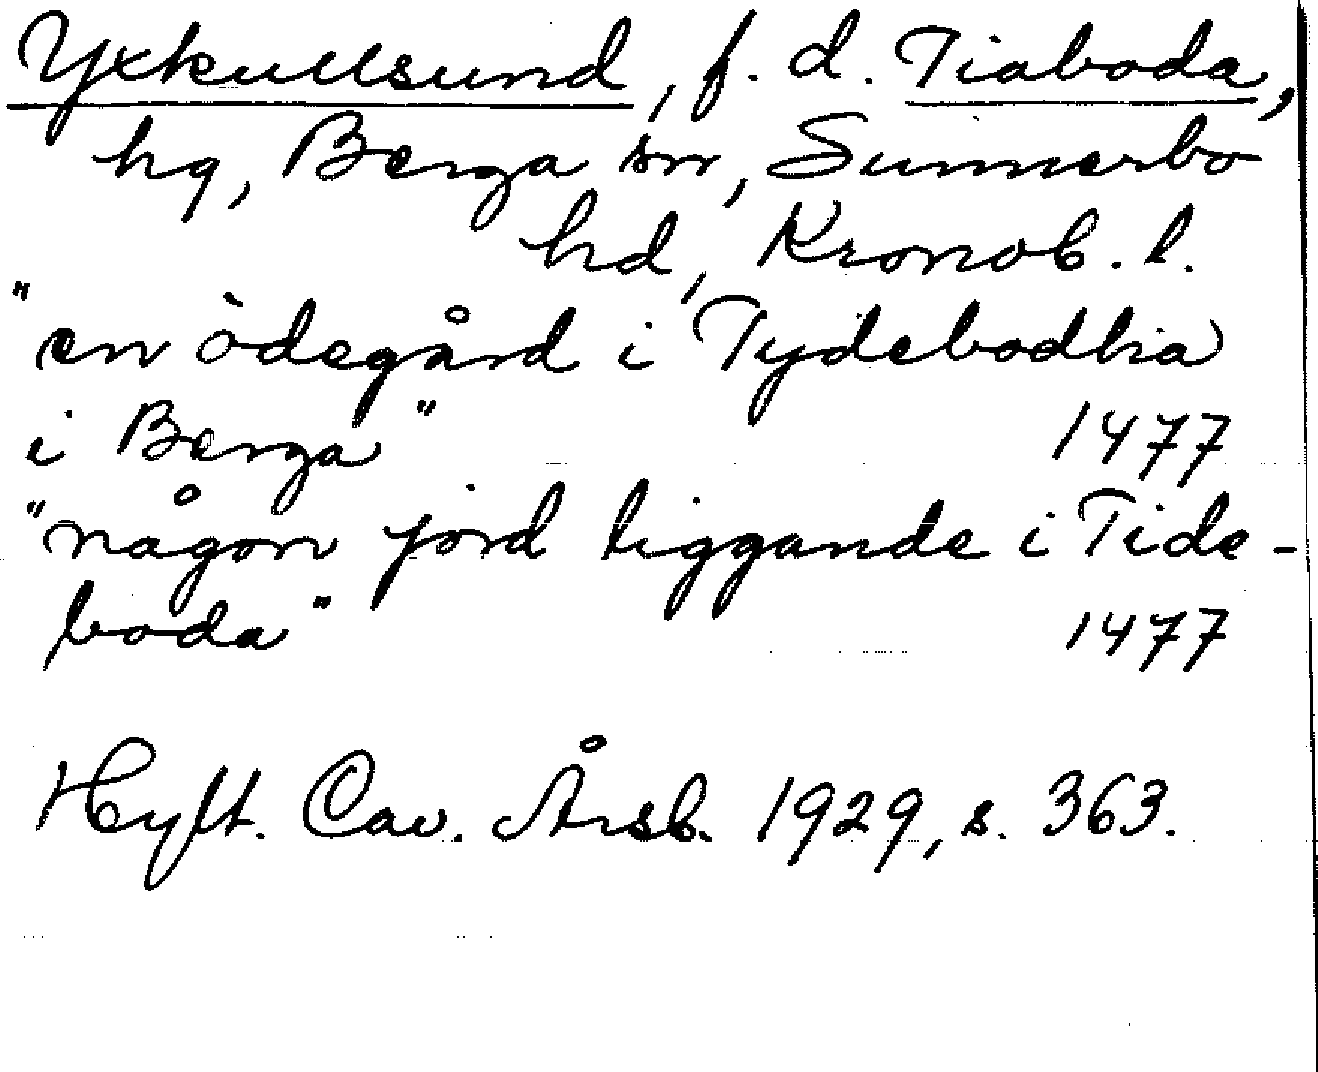 Yxkullsund, f. d. Tiaboda,
hg, Berga sn, Sunnerbo
hd, Kronob. l.
"en ödegård i Tydebodha
i Berga" 1477
"någon jord liggande i Tide-
boda" 1477
Hylt. Cav. Årsb. 1929, s. 363.